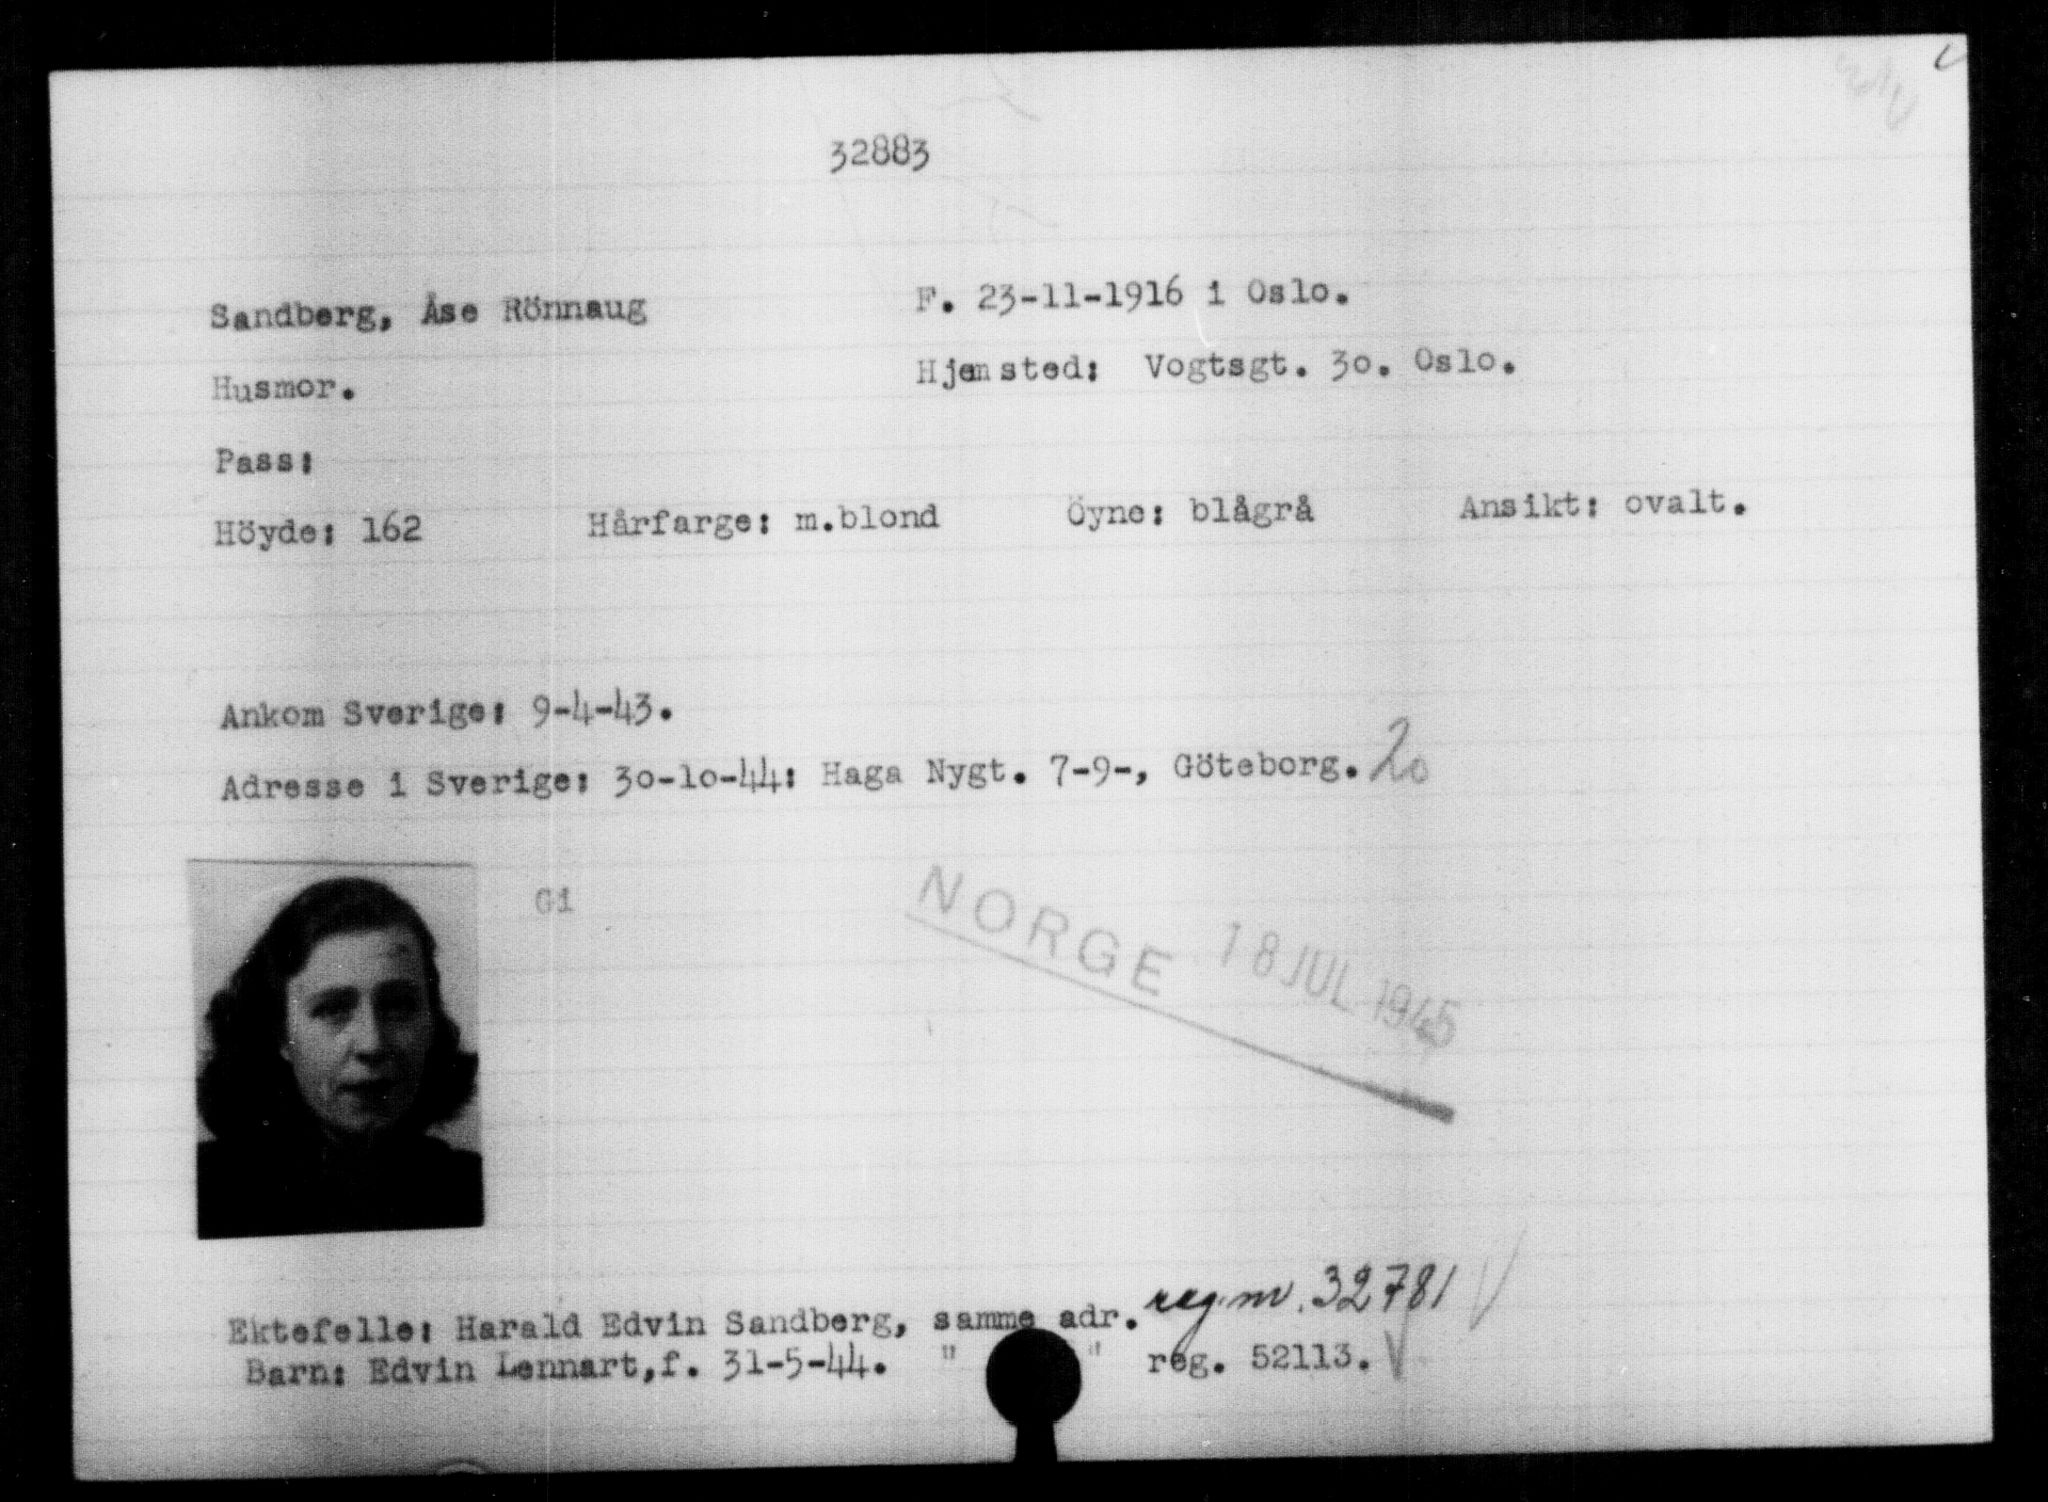 32883
Sandberg, Åse Rönnaug
F. 23-11-1916 i Oslo.
Husmor.
Hjemsted: Vogtsgt. 30. Oslo.
Pass:
Höyde: 162 Hårfarge: m.blond Öyne: blågrå Ansikt: ovalt.
Ankom Sverige: 9-4-43.
Adresse i Sverige: 30-10-44: Haga Nygt. 7-9-, Göteborg. 20
Gi
NORGE 18 JUL 1945
Ektefelle: Harald Edvin Sandberg, samme adr. reg.nr. 32781 V
Barn: Edvin Lennart,f. 31-5-44. " " reg. 52113. V